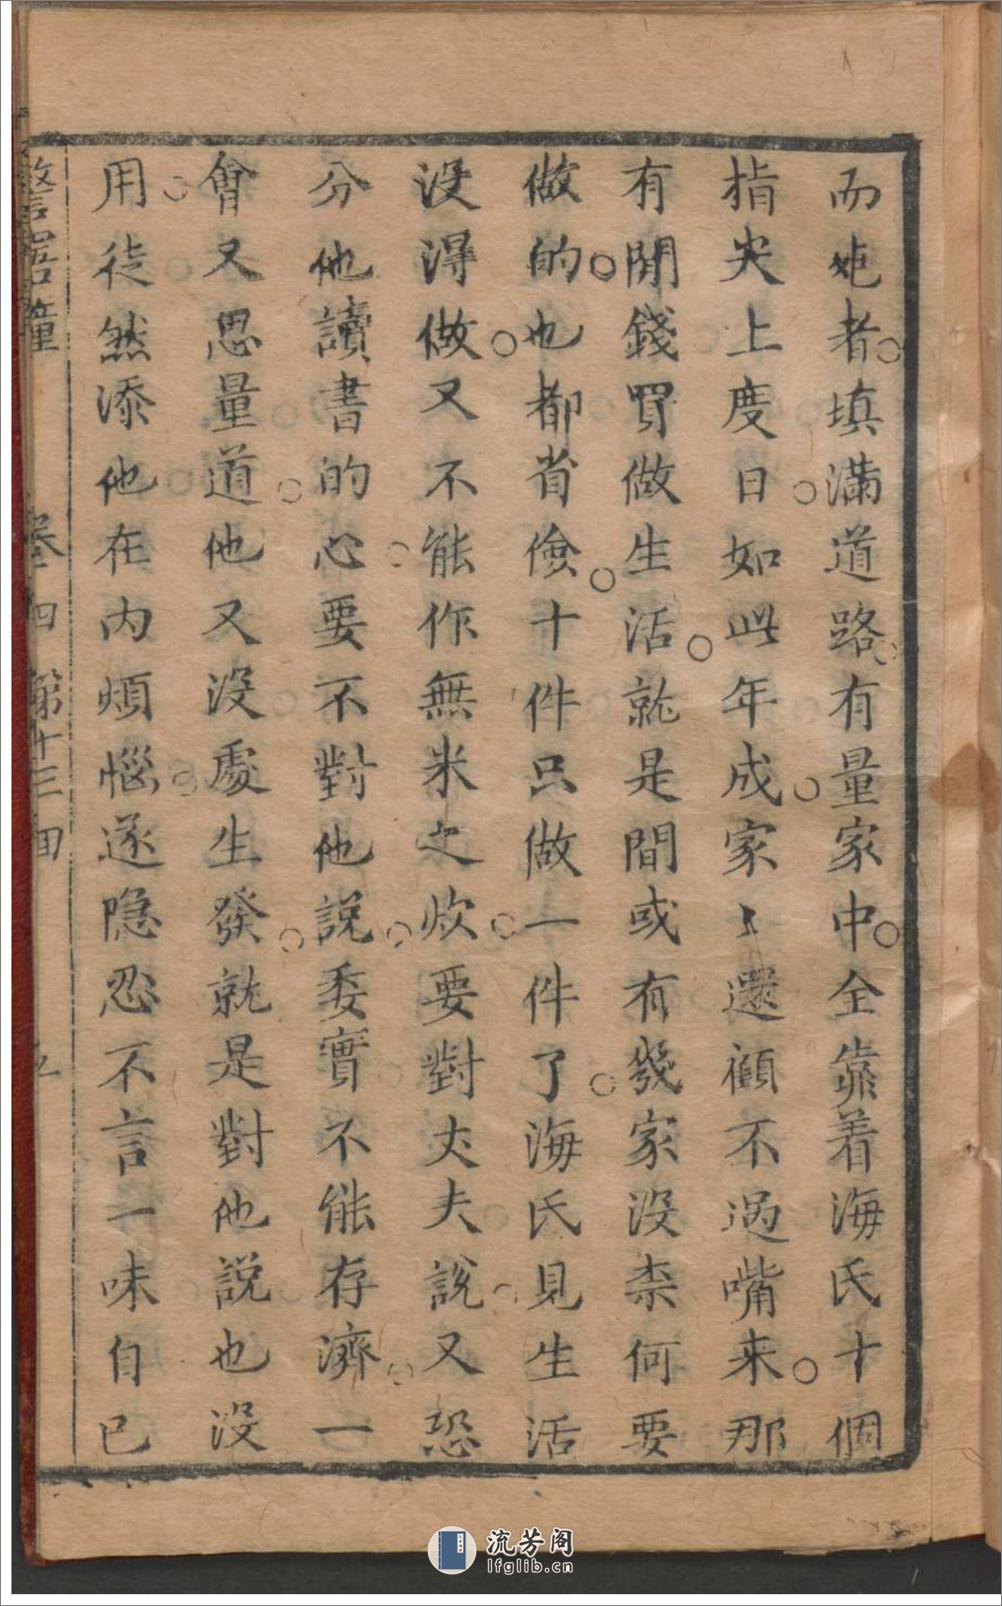 而𡚒者填滿道路有量家中全靠着海氏十個
指尖上度日如此年成家〻還顧不過嘴来那
有閒錢買做生活就是間或有發家没柰何要
做的也都省儉十件只做一件了海氏見生活
没得做又不能作無米之炊要對丈夫說又恐
分他讀書的心要不對他說委實不能存濟一
會又思量道他又没處生發就是對他說也没
用徒然添他在内煩惱遂隐忍不言一味自已
卷四 第十三回 五
流芳阁
lfglib.cn